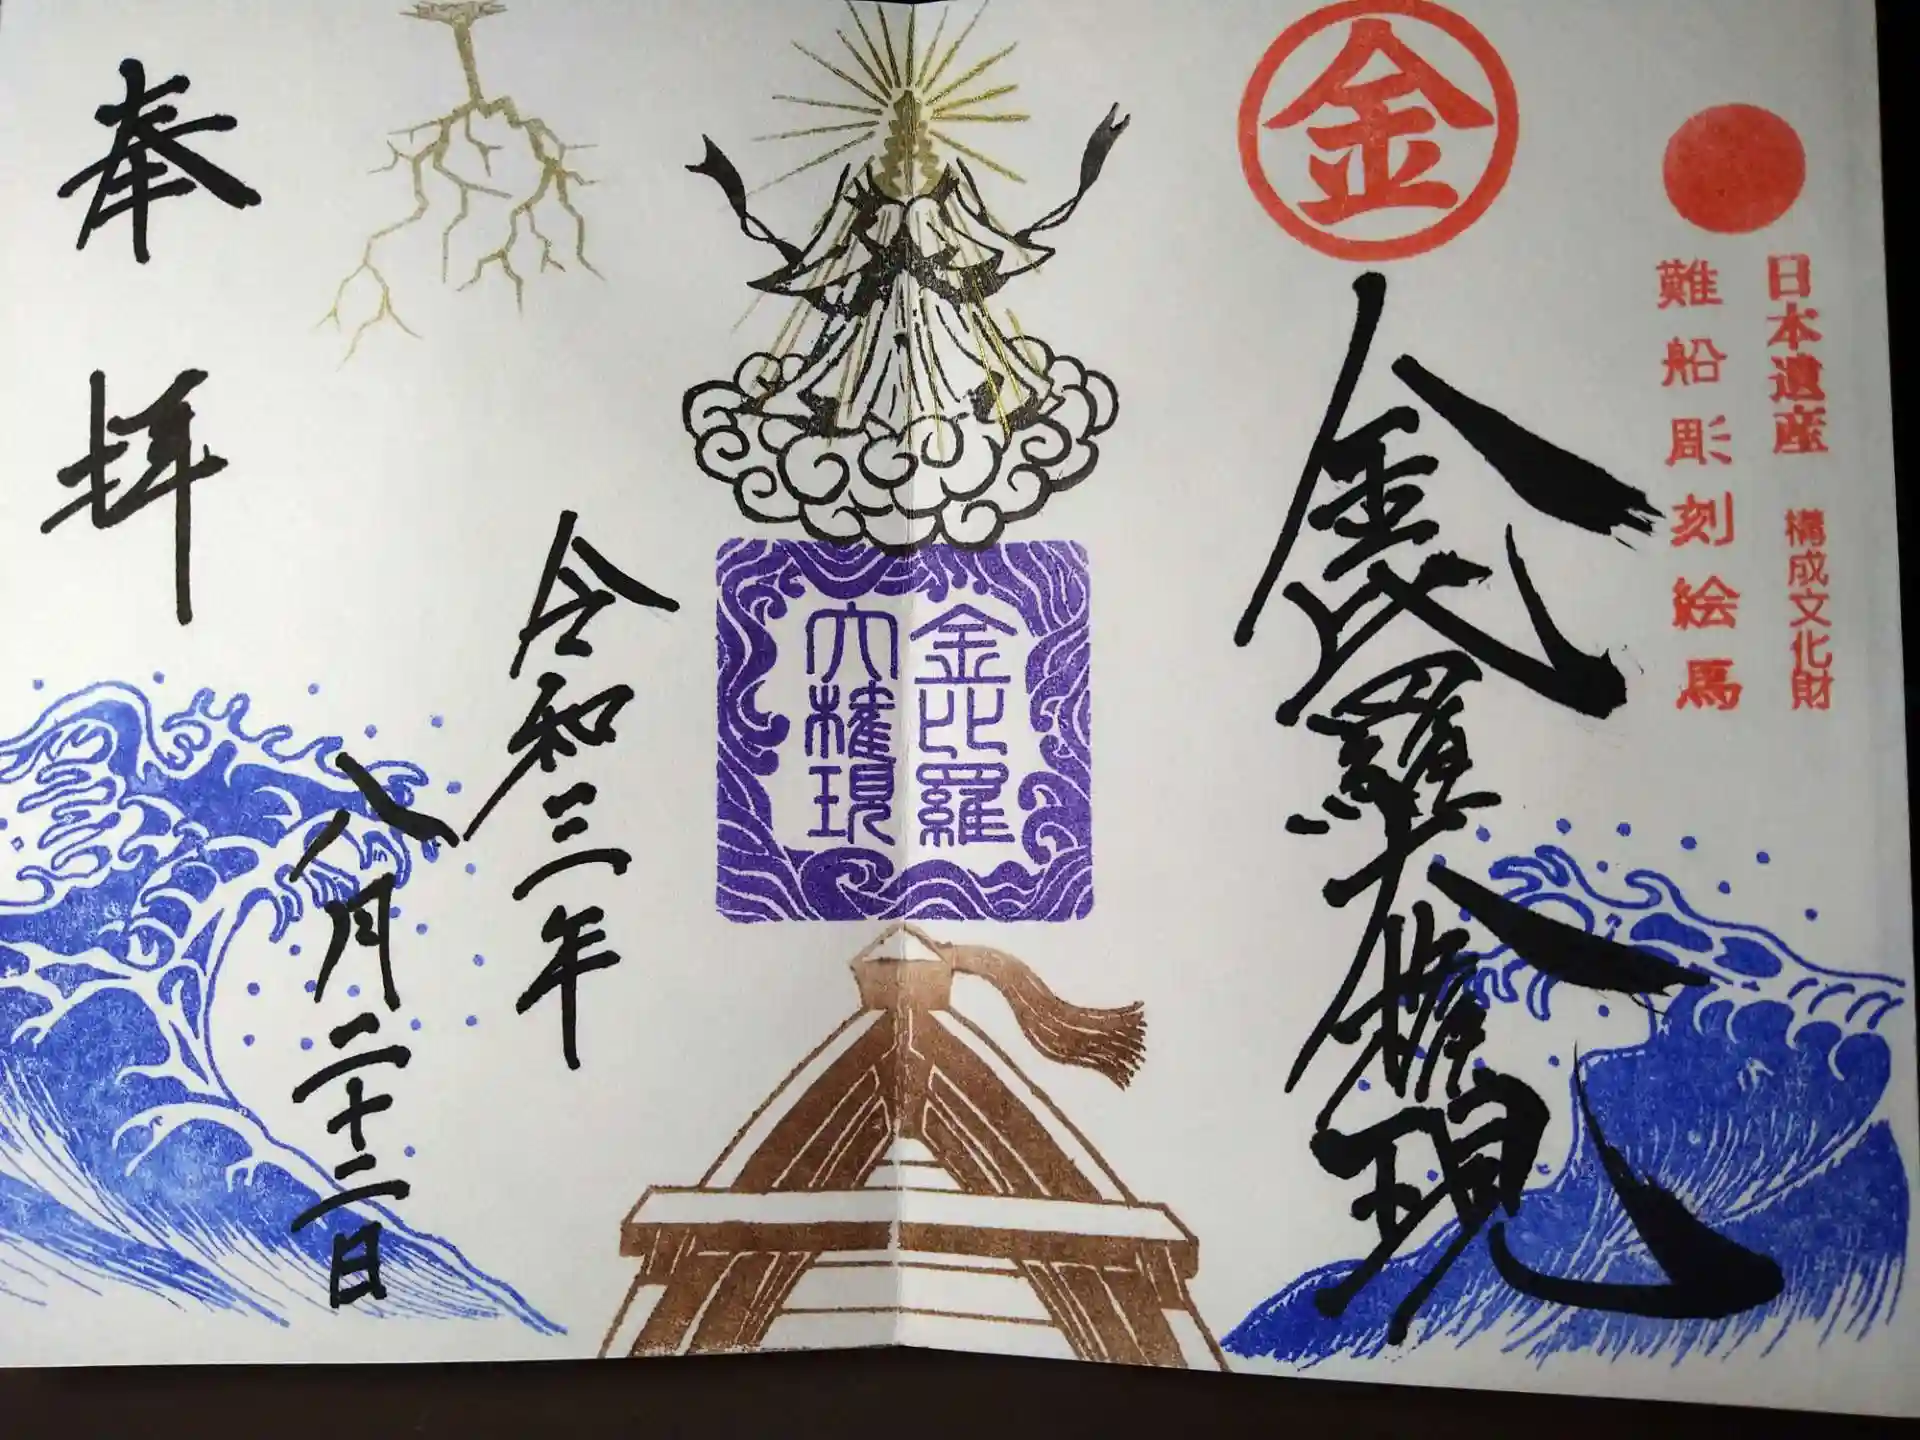 日本遺産 構成文化財
難船彫刻絵馬
金
金毘羅大権現
金比羅
大権現
令和三年
八月二十二日
奉拝